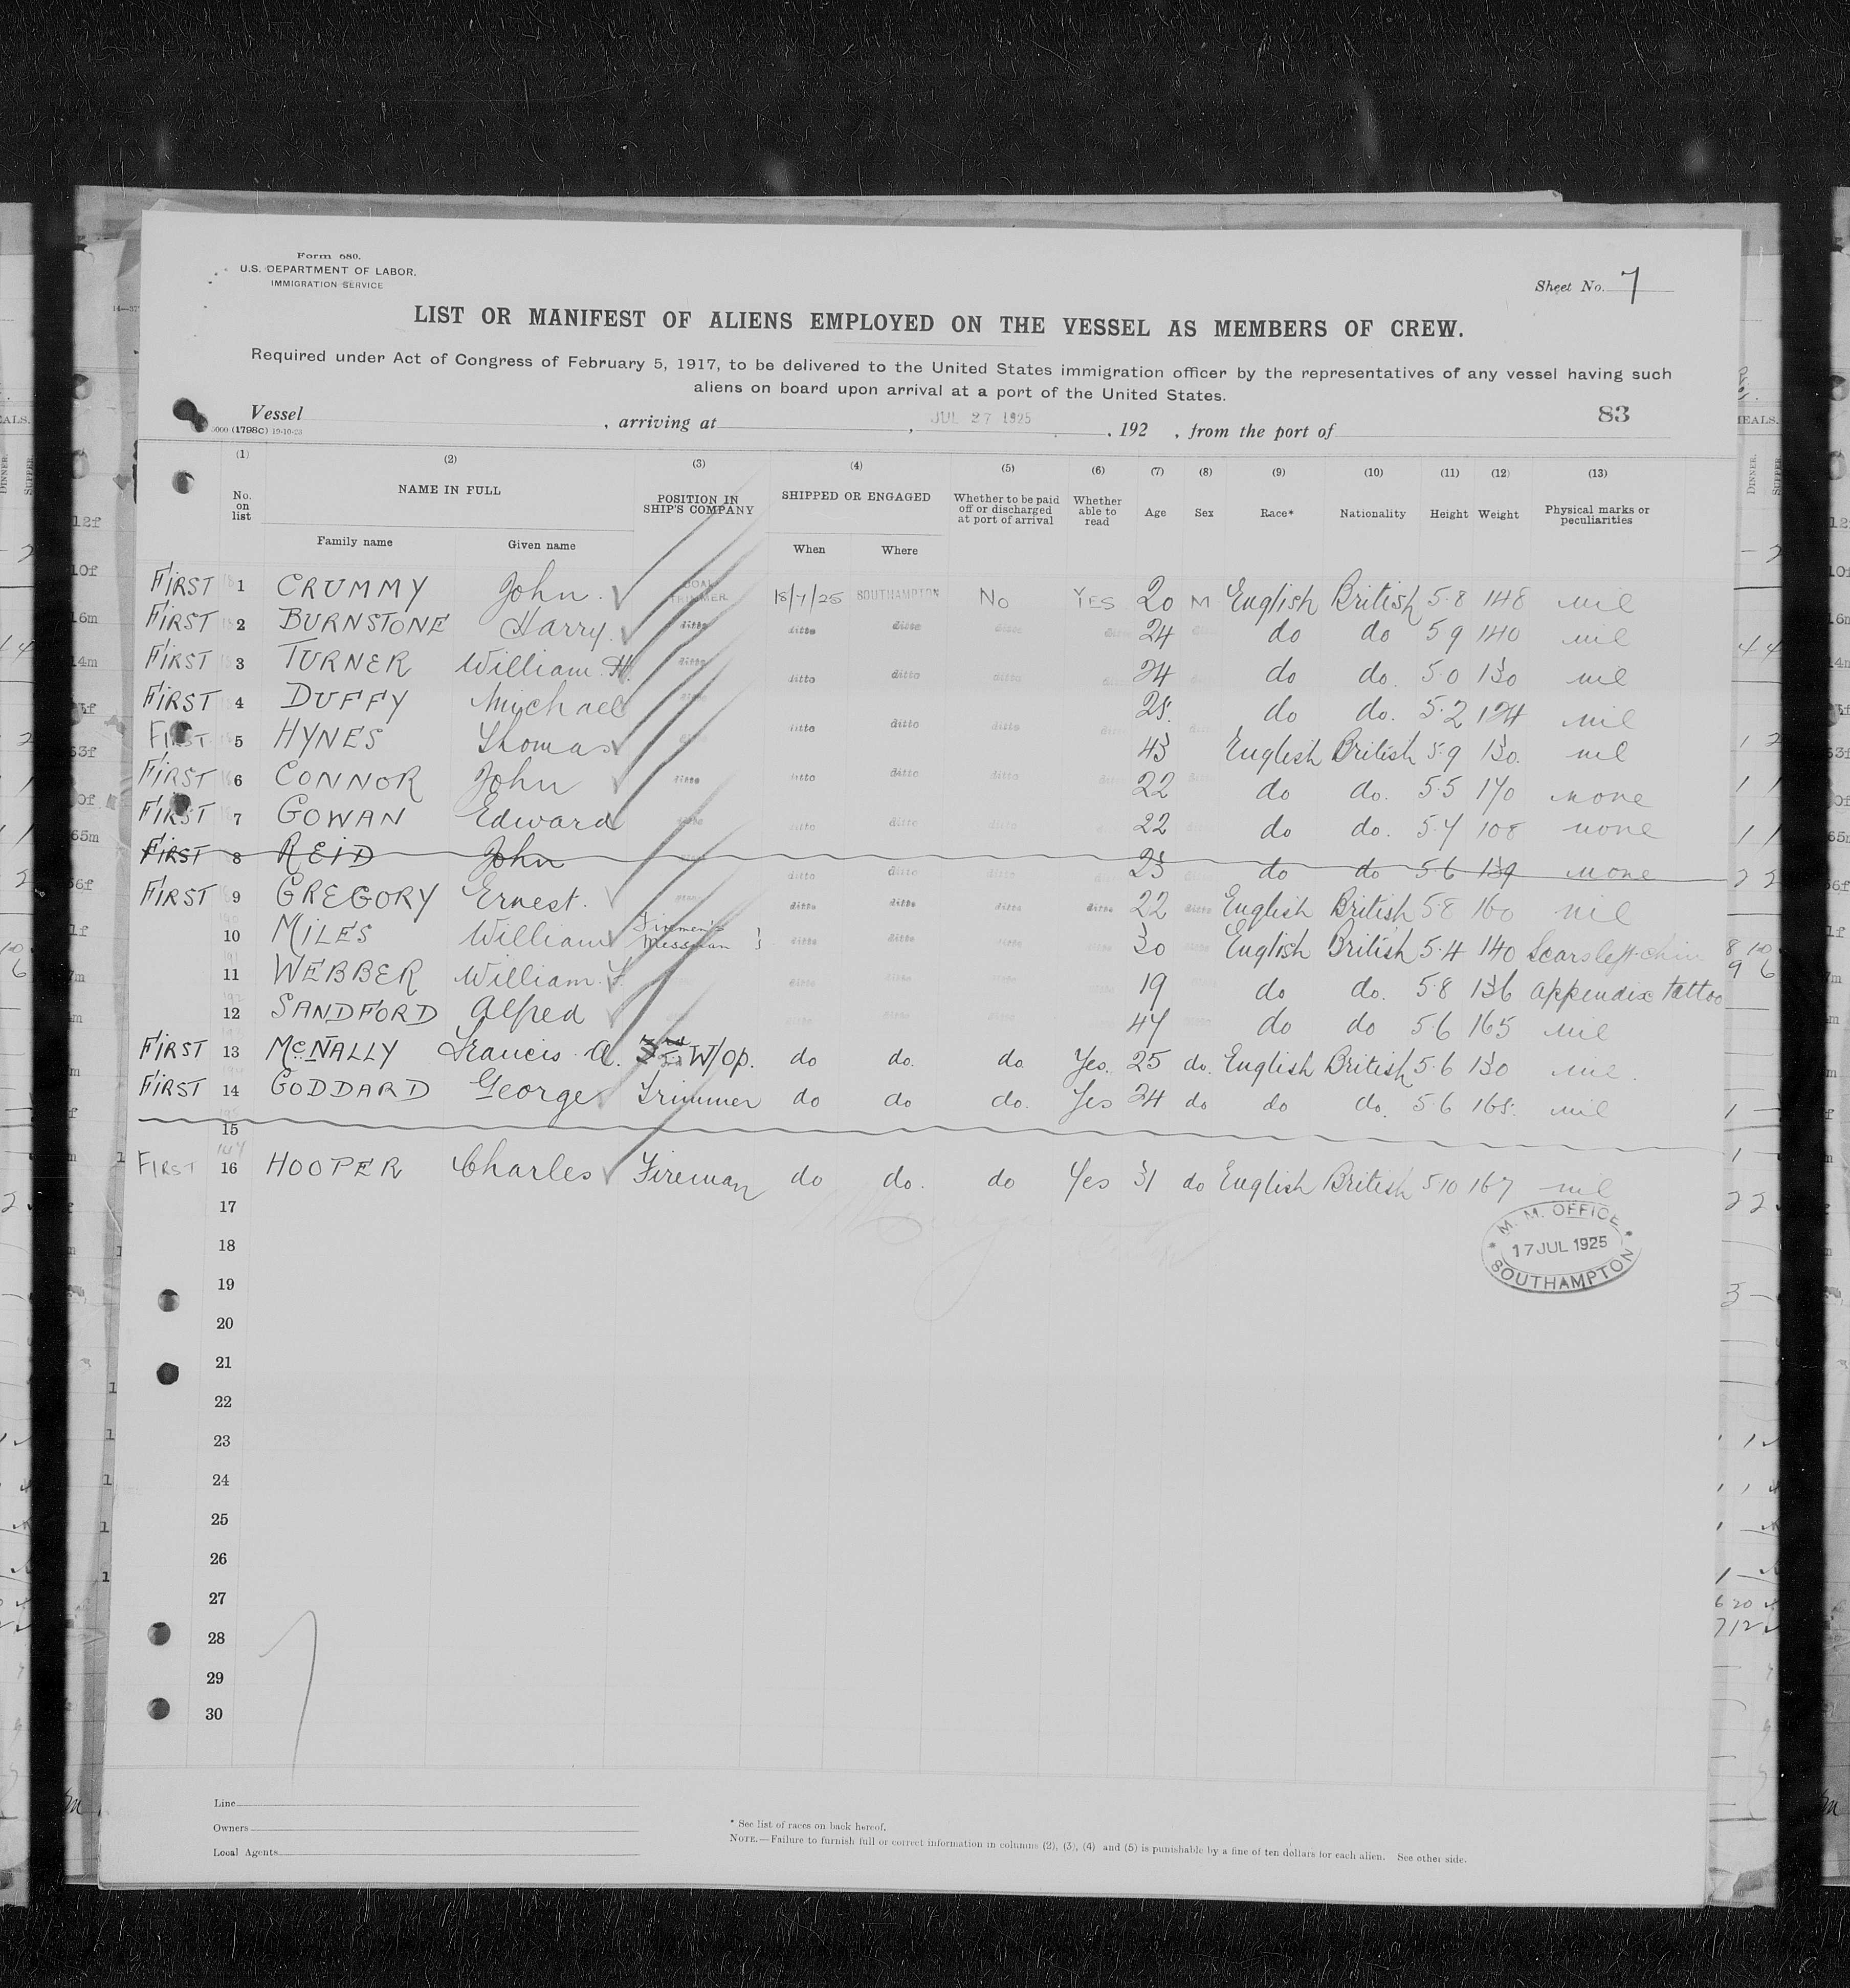 Form 680.
U.S. DEPARTMENT OF LABOR,
IMMIGRATION SERVICE
Sheet No. 7
LIST OR MANIFEST OF ALIENS EMPLOYED ON THE VESSEL AS MEMBERS OF CREW.
Required under Act of Congress of February 5, 1917, to be delivered to the United States immigration officer by the representatives of any vessel having such
aliens on board upon arrival at a port of the United States.
Vessel , arriving at , JUL 27 1925 , 192 , from the port of 83
5000 (1798c) 19-10-23
(1) (2) (3) (4) (5) (6) (7) (8) (9) (10) (11) (12) (13)
No. on list NAME IN FULL POSITION IN SHIP'S COMPANY SHIPPED OR ENGAGED Whether to be paid off or discharged at port of arrival Whether able to read Age Sex Race* Nationality Height Weight Physical marks or peculiarities
Family name Given name When Where
FIRST 1 CRUMMY John COAL TRIMMER 18/7/25 SOUTHAMPTON No YES 20 M English British 5.8 148 nil
FIRST 2 BURNSTONE Harry ditto ditto ditto ditto ditto 24 do do 5 9 140 nil
FIRST 3 TURNER William H. ditto ditto ditto ditto 24 do do. 5.0 130 nil
FIRST 4 DUFFY Michael 25. do do. 5.2 124 nil
FIRST 5 HYNES Thomas ditto ditto ditto 43 English British 5.9 130. nil
FIRST 6 CONNOR John ditto ditto ditto ditto 22 do do. 5.5 170 none
FIRST 7 GOWAN Edward ditto ditto ditto 22 do do. 5.7 108 none
FIRST 8 REID John ditto ditto ditto 23 do do 5 6 139 none
FIRST 9 GREGORY Ernest. ditto ditto ditto ditto 22 ditto English British 5.8 160 nil
10 MILES William Firemen's Messman ditto ditto ditto 30 English British 5.4 140 Scars left chin
11 WEBBER William ditto ditto ditto 19 do do. 5.8 136 appendix tattoo
12 SANDFORD Alfred 47 do do 5.6 165 nil
FIRST 13 McNALLY Francis A. W/Op. do do. do Yes. 25 do. English British 5.6 130 nil.
FIRST 14 GODDARD George Trimmer do do do. Yes 24 do do do. 5 6 168. nil
15
FIRST 16 HOOPER Charles Fireman do do. do Yes 31 do English British 5 10 167 nil
17
M. M. OFFICE
17 JUL 1925
SOUTHAMPTON
18
19
20
21
22
23
24
25
26
27
28
29
30
Line
Owners
Local Agents
* See list of races on back hereof.
NOTE.—Failure to furnish full or correct information in columns (2), (3), (4) and (5) is punishable by a fine of ten dollars for each alien. See other side.